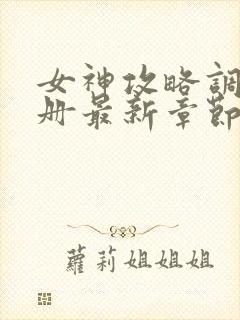 女神攻略調
册最新章節
蘿莉姐姐姐